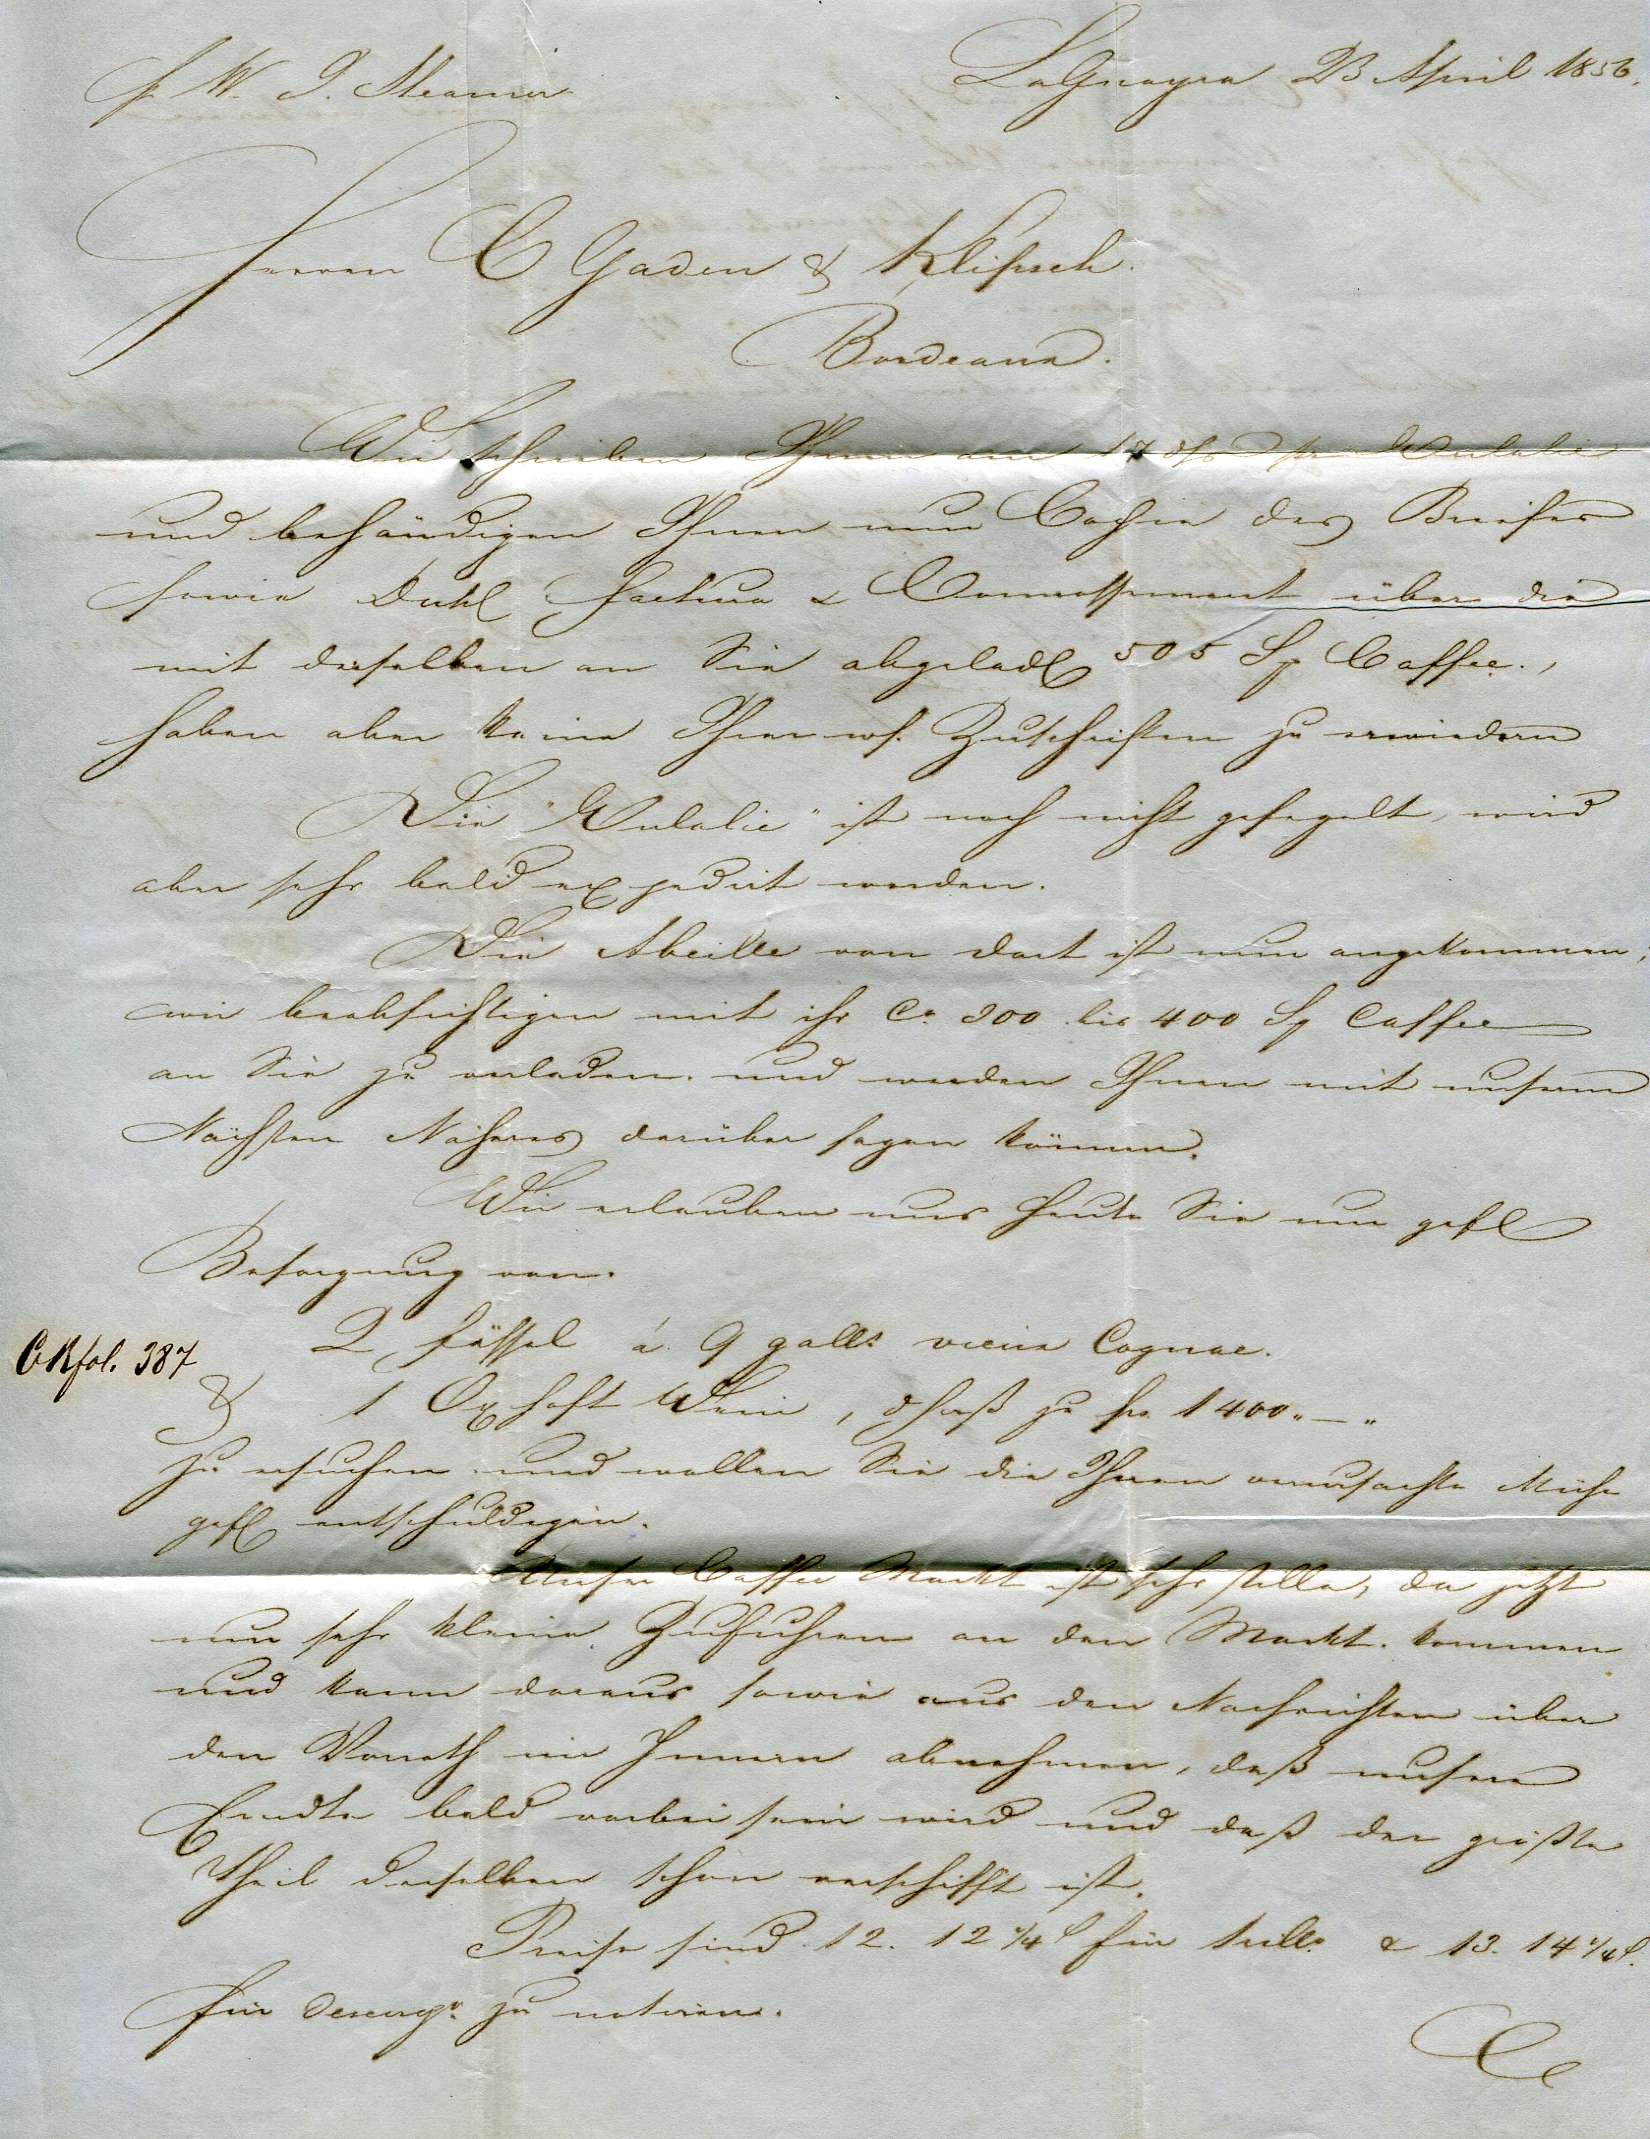 p. W. I. Steamer
LaGuayra 23 April 1856.
Herren C Gaden & Klipsch.
Bordeaux.
Wir schrieben Ihnen am 17 ds per Eulalie
und behändigen Ihnen nun Copie des Briefes
sowie Dukl Factura & Connossement über die
mit derselben an Sie abgeladl 505 S/ Caffee.,
haben aber keine Ihrer w. Zuschriften zu erwiedern
Die "Eulalie" ist noch nicht gesegelt, wird
aber sehr bald expedirt werden.
Die Abeille von dort ist nun angekommen,
wir beabsichtigen mit ihr Ca. 300 bis 400 S/ Caffee
an Sie zu verladen und werden Ihnen mit unserm
Nächsten Näheres darüber sagen können.
Wir erlauben uns heute Sie um gefl
Besorgung von.
2 Fässel à 9 galls vieux Cognac.
CKfol. 387
& 1 Oxhoft Wein, zu frs 1400.-"
zu ersuchen und wollen Sie die Ihnen verursachte Mühe
gefl entschuldigen.
Unser Caffee Markt ist sehr stille, da jetzt
nur sehr kleine Zufuhren an den Markt kommen
und kann daraus sowie aus den Nachrichten über
den Vorrath im Innern abnehmen, daß unsere
Erndte bald vorbei sein wird und daß der größte
Theil derselben schon verschifft ist.
Preise sind 12. 12 1/4 für trill. & 13. 14 1/4
für descergo. zu notiren.